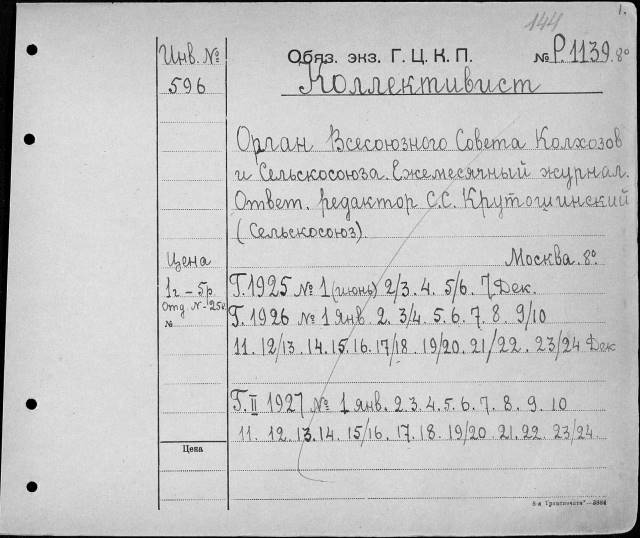 144 1.
Инв. №
596
Обяз. экз. Г. Ц. К. П. № Р.1139. 8º
Коллективист
Орган Всесоюзного Совета Колхозов
и Сельскосоюза. Ежемесячный журнал.
Ответ. редактор С.С. Крутошинский
(Сельскосоюз)
Москва. 8º
Цена
1г – 5р
Отд №-25к
№
Г. 1925 № 1 (июнь) 2/3. 4. 5/6. 7 Дек.
Г. 1926 № 1 янв. 2. 3/4. 5. 6. 7. 8. 9/10
11. 12/13. 14. 15. 16. 17/18. 19/20. 21/22. 23/24 Дек
Г. II 1927 № 1 янв. 2. 3. 4. 5. 6. 7. 8. 9. 10
11. 12. 13. 14. 15/16. 17. 18. 19/20. 21. 22. 23/24.
Цена